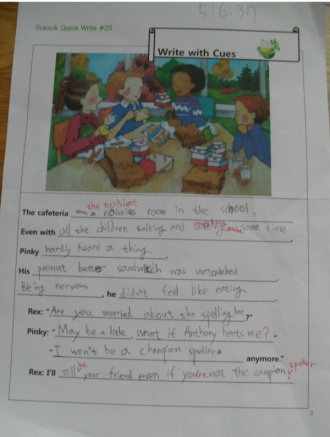 5:6.37
Suksuk Quick Write #20
Write with Cues
the noisiest
The cafeteria was noisiest room in the school.
Even with all the children talking and same time
Pinky hardly heard a thing
His peanut butter sandwich was untouched
Being nervous, he didn't feel like eating.
Rex: "Are you worried about the spelling bee,
Pinky: "May be a little, what if Anthony beats me?"
"I won't be a champion speller anymore."
speller
be
Rex: I'll still your friend even if you're not the campion.